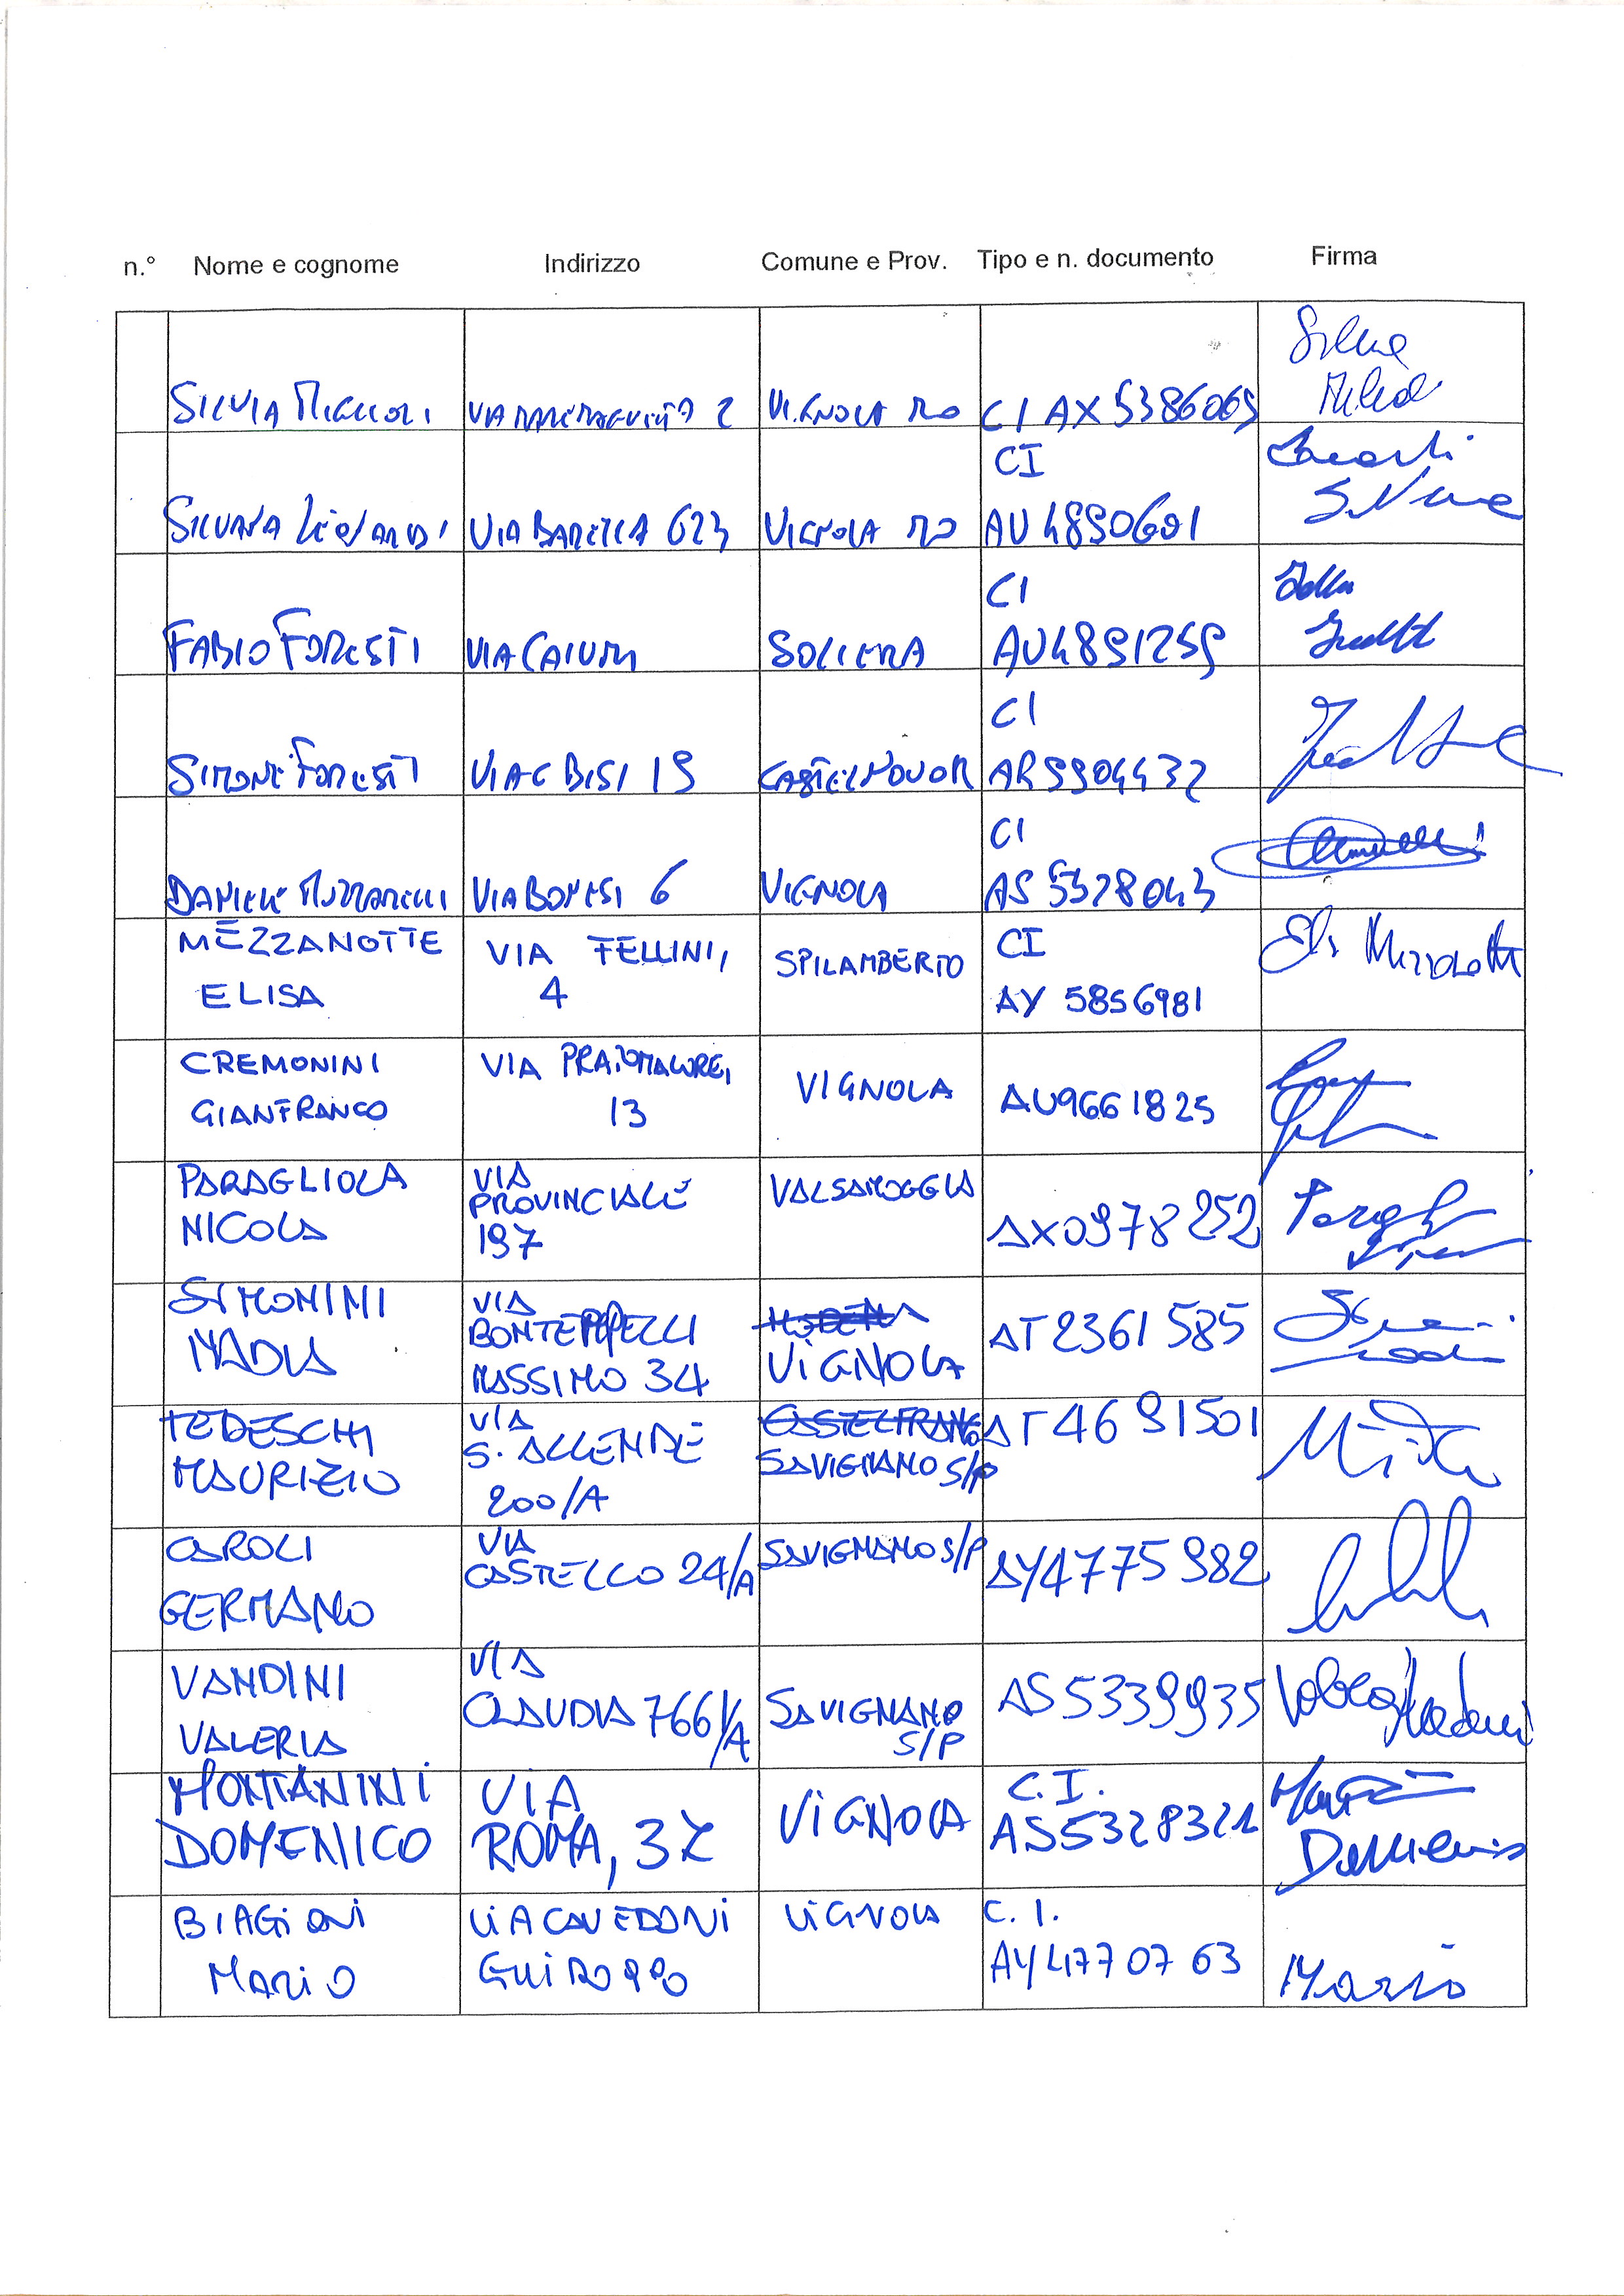 n.° Nome e cognome Indirizzo Comune e Prov. Tipo e n. documento Firma
SILVIA MIGLIORI VIA 2 VIGNOLA MO CI AX 5386069
CI
SILVANA LEONARDI VIA BARELLA 623 VIGNOLA MO AU4890601
CI
FABIO FORESTI VIA SOLIERA AU4891259
CI
SIMONE FORESTI VIA C BISI 19 CASTELNUOVO R AR9904432
CI
DANIELE MUZZARELLI VIA BONESI 6 VIGNOLA AS 5328043
MEZZANOTTE
ELISA
VIA FELLINI,
4
SPILAMBERTO
CI
AY 5856981
CREMONINI
GIANFRANCO
VIA
13
VIGNOLA
AU9661825
PARAGLIOLA
NICOLA
VIA
PROVINCIALE
197
VALSAMOGGIA
AX0978252
SIMONINI
NADIA
VIA
MASSIMO 34
MODENA
VIGNOLA
AT2361585
TEDESCHI
MAURIZIO
VIA
S. ALLENDE
200/A
CASTELFRANCO
SAVIGNANO S/P
AT4691501
CAROLI
GERMANO
VIA
CASTELLO 24/A
SAVIGNANO S/P
AY4775982
VANDINI
VALERIA
VIA
CLAUDIA 766/A
SAVIGNANO
S/P
AS5339935
MONTANINI
DOMENICO
VIA
ROMA, 32
VIGNOLA
C.I.
AS5328321
Domenico
BIAGIONI
MARIO
VIA CAVEDONI
VIGNOLA
C. I.
AY4770763
Mario